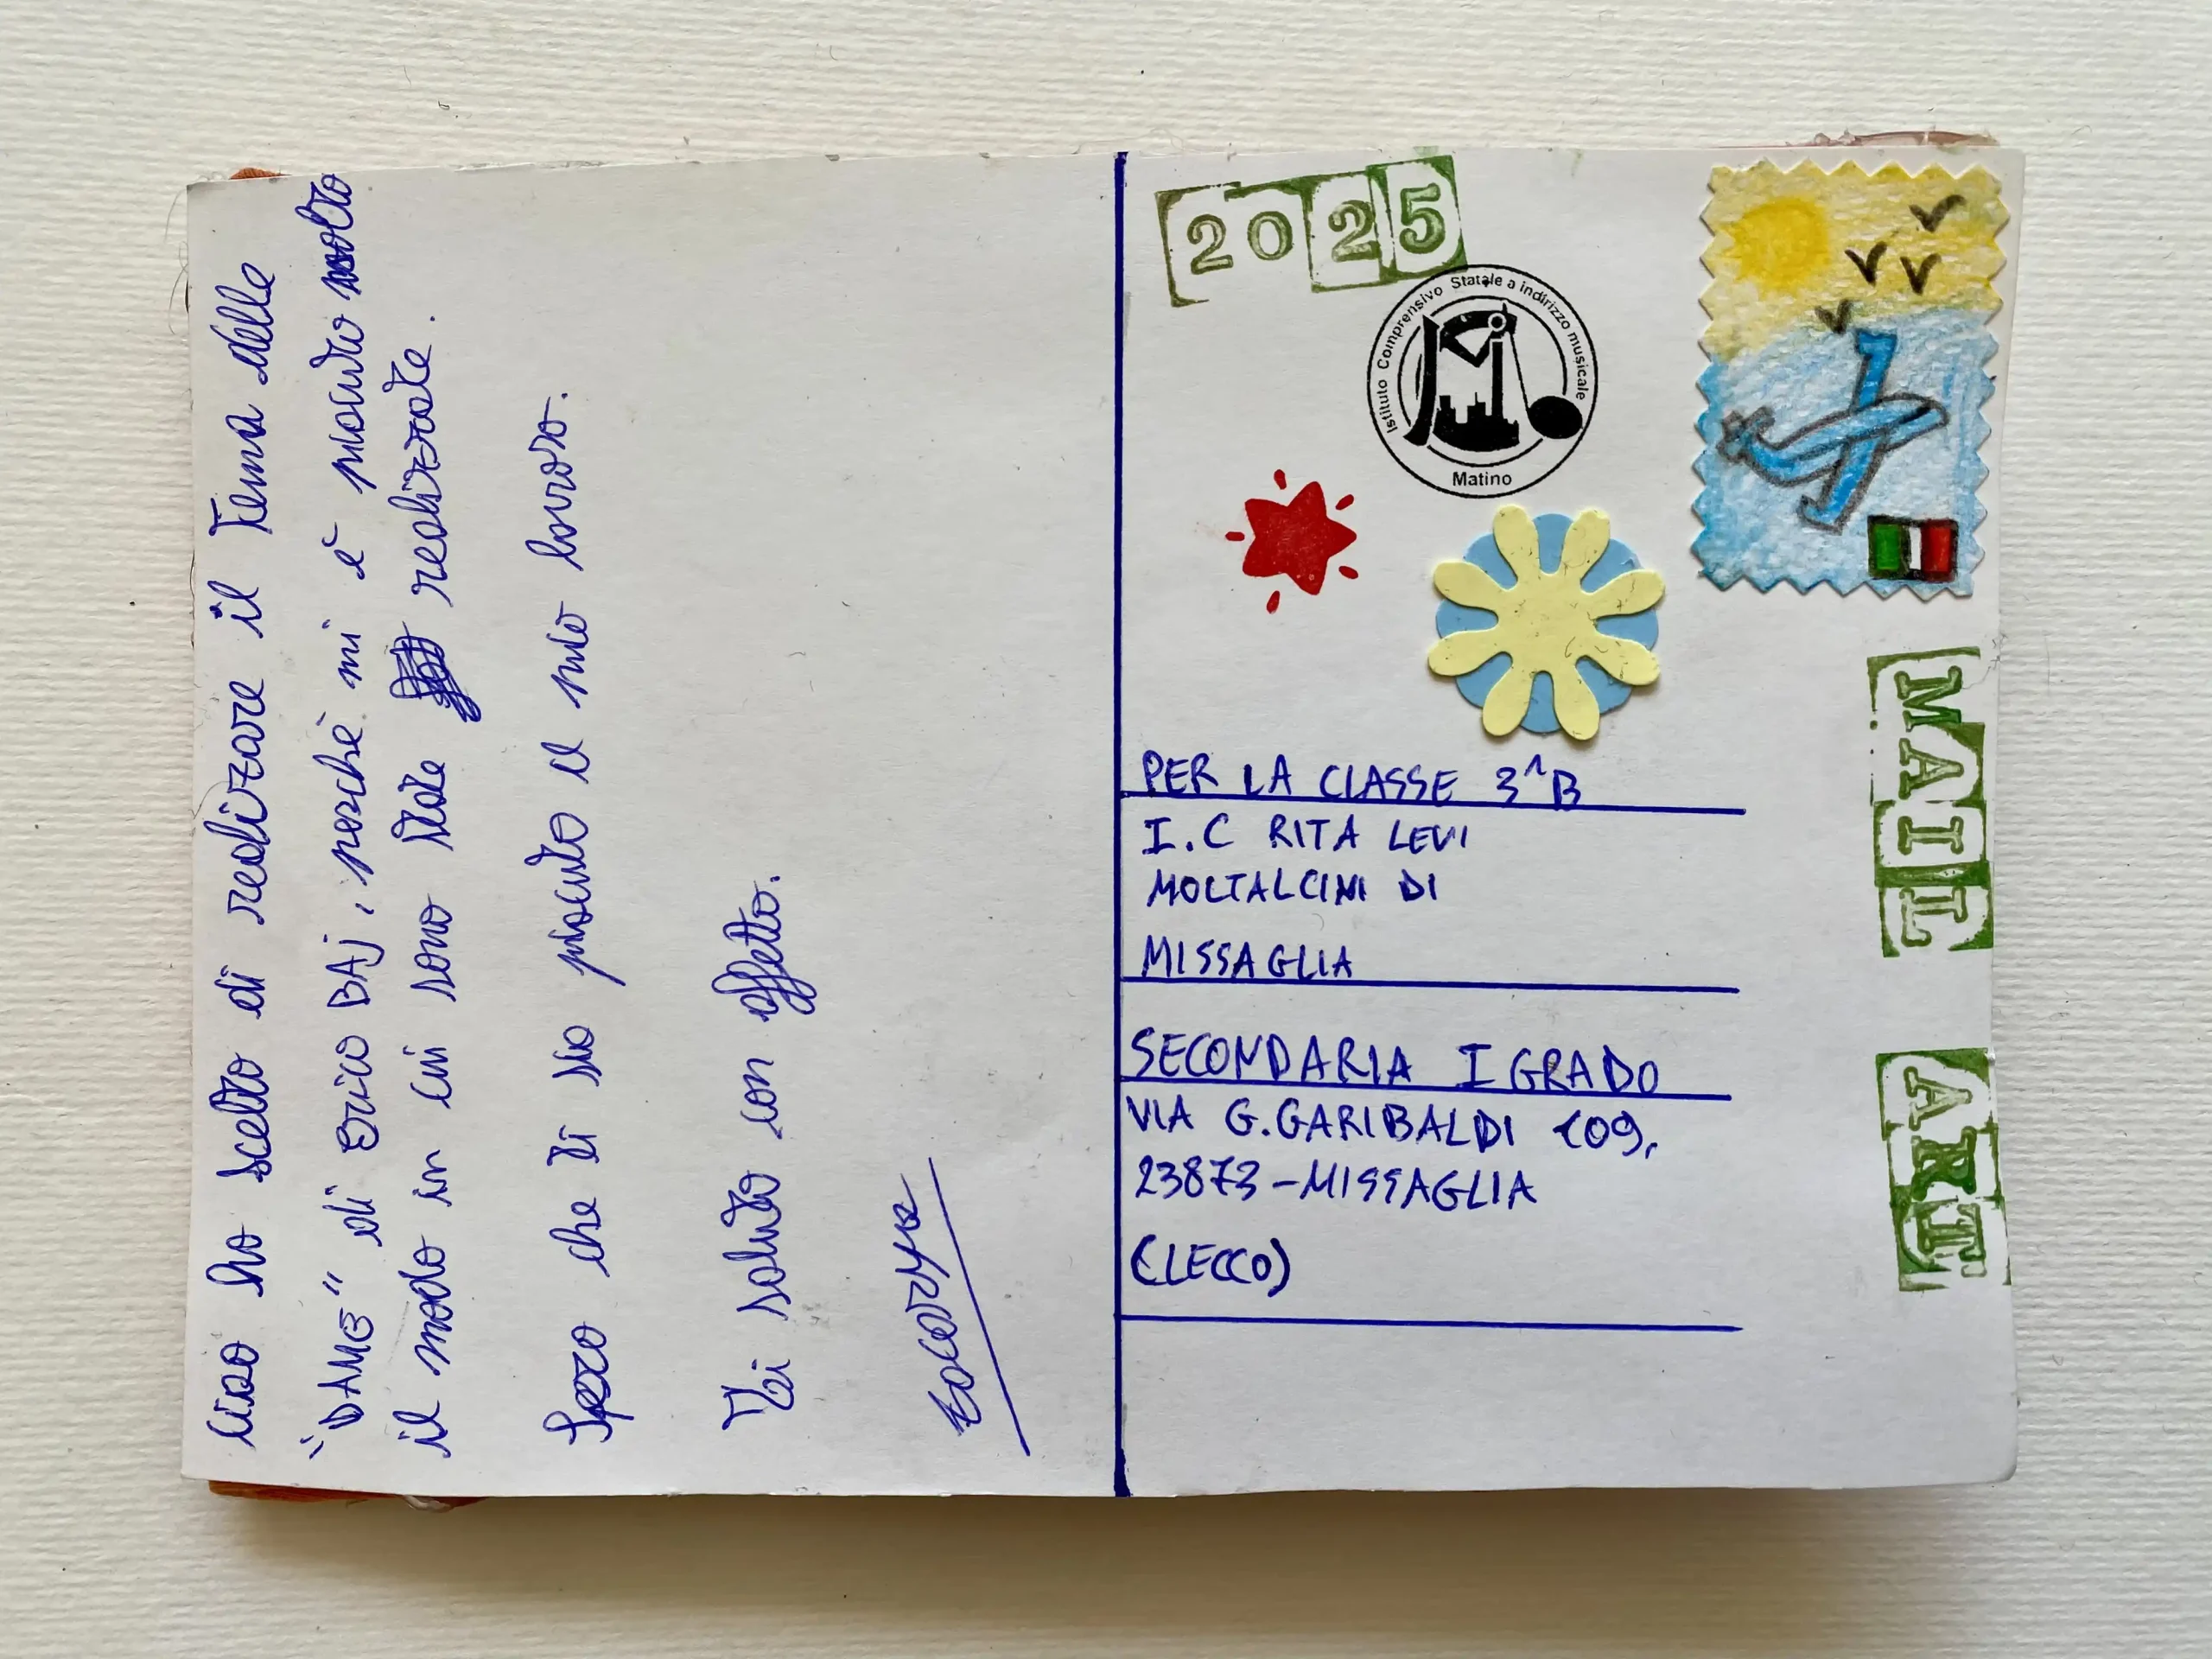 ciao ho scelto di realizzare il Tema delle
"DAME" di Enrico BAj, perchè mi è piaciuto molto
il modo in cui sono state realizzate.
Spero che ti sia piaciuto il mio lavoro.
Ti saluto con affetto.
2025
Istituto Comprensivo Statale a indirizzo musicale
Matino
PER LA CLASSE 3^B
I.C RITA LEVI
MOLTALCINI DI
MISSAGLIA
SECONDARIA I GRADO
VIA G.GARIBALDI 109,
23873-MISSAGLIA
(LECCO)
MAIL
ART